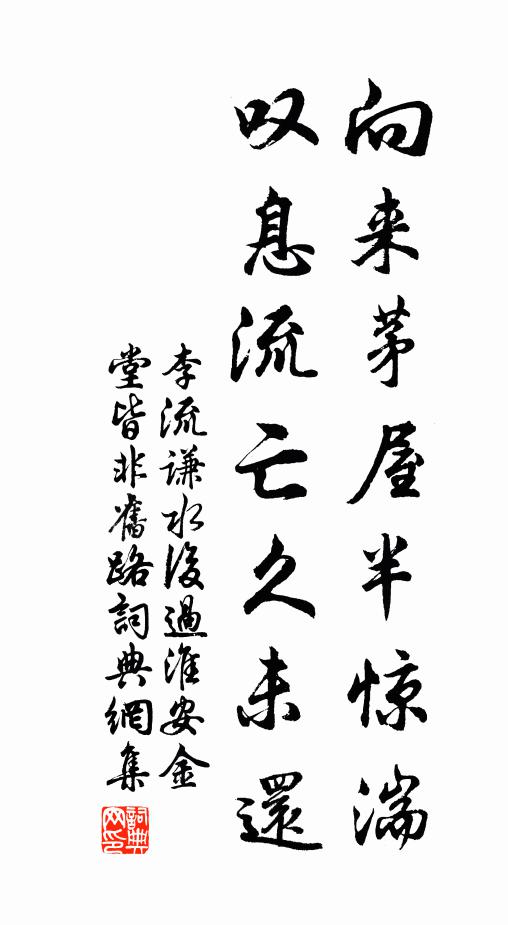 向来茅屋半惊湍
叹息流亡久未還
李流谦水後過淮安金
堂皆非舊路詞典網集
詞典网印